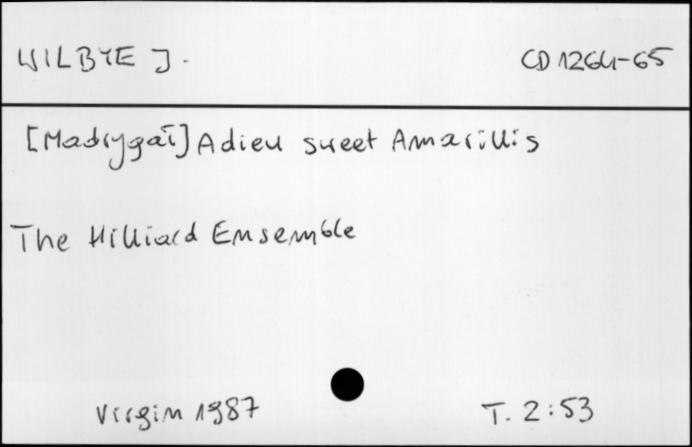 WILBYE J. CD 1264-65
[Madrygał] Adieu sweet Amarillis
The Hilliard Ensemble
Virgin 1987 T. 2:53